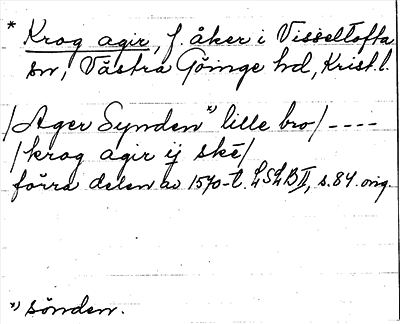 * Krog agir, f. åker i Visseltofta
sn, Västra Göinge hd, Krist. l.
/Ager Synden *) lille bro/ ----
/krog agir ij ske/
förra delen av 1570-t. LSLB II, s. 84 orig.
*) sönden.